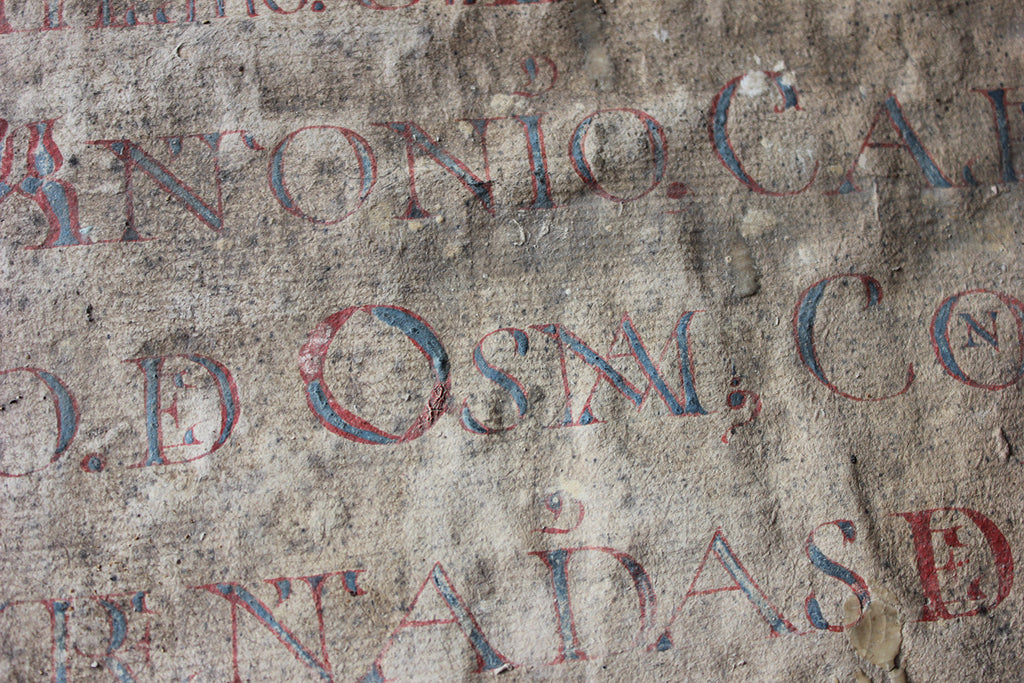 ANTONIO. CA
O. DE OSMA, CON
RNADAS DE